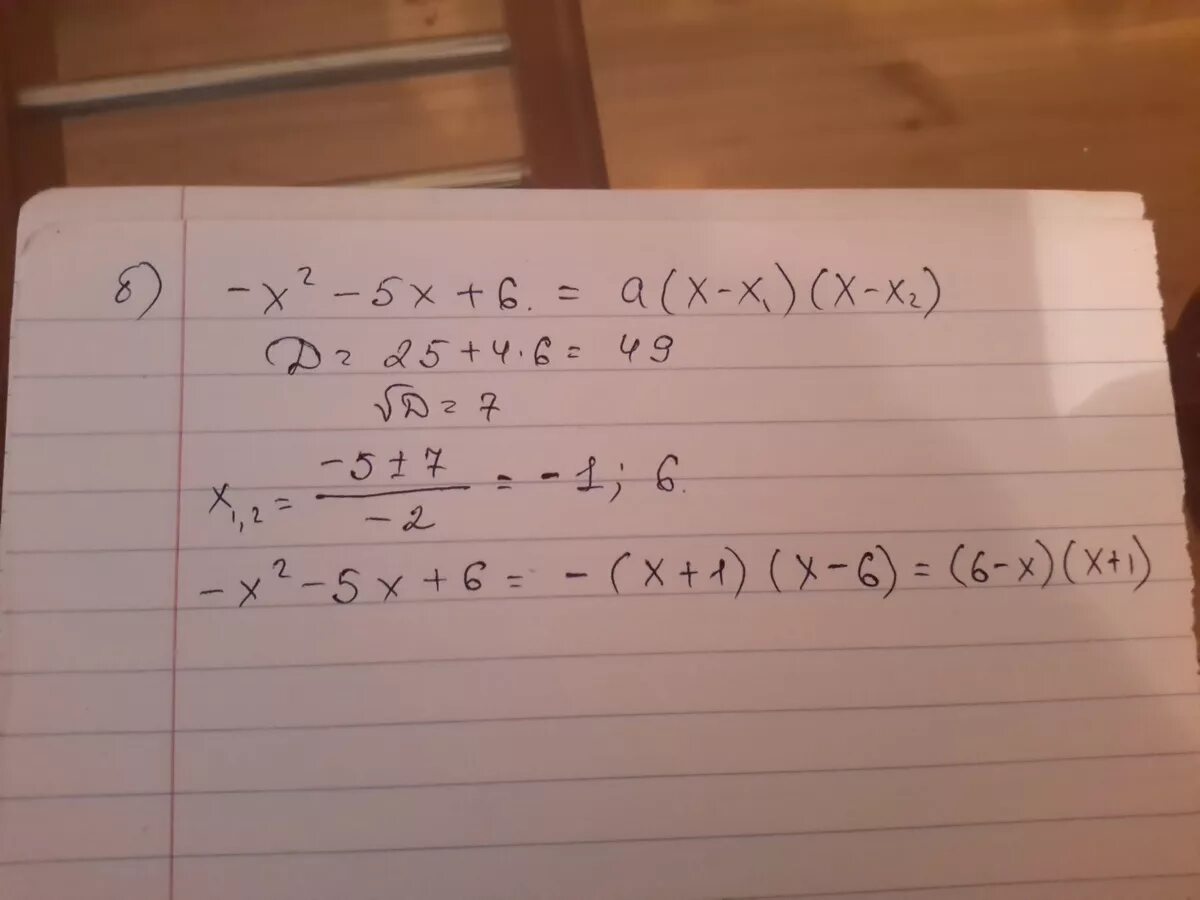 б) -x² - 5x + 6. = a(x-x₁)(x-x₂)
D = 25 + 4·6 = 49
√D = 7
x₁,₂ = (-5 ± 7)/(-2) = -1; 6.
-x² - 5x + 6 = -(x+1)(x-6) = (6-x)(x+1)